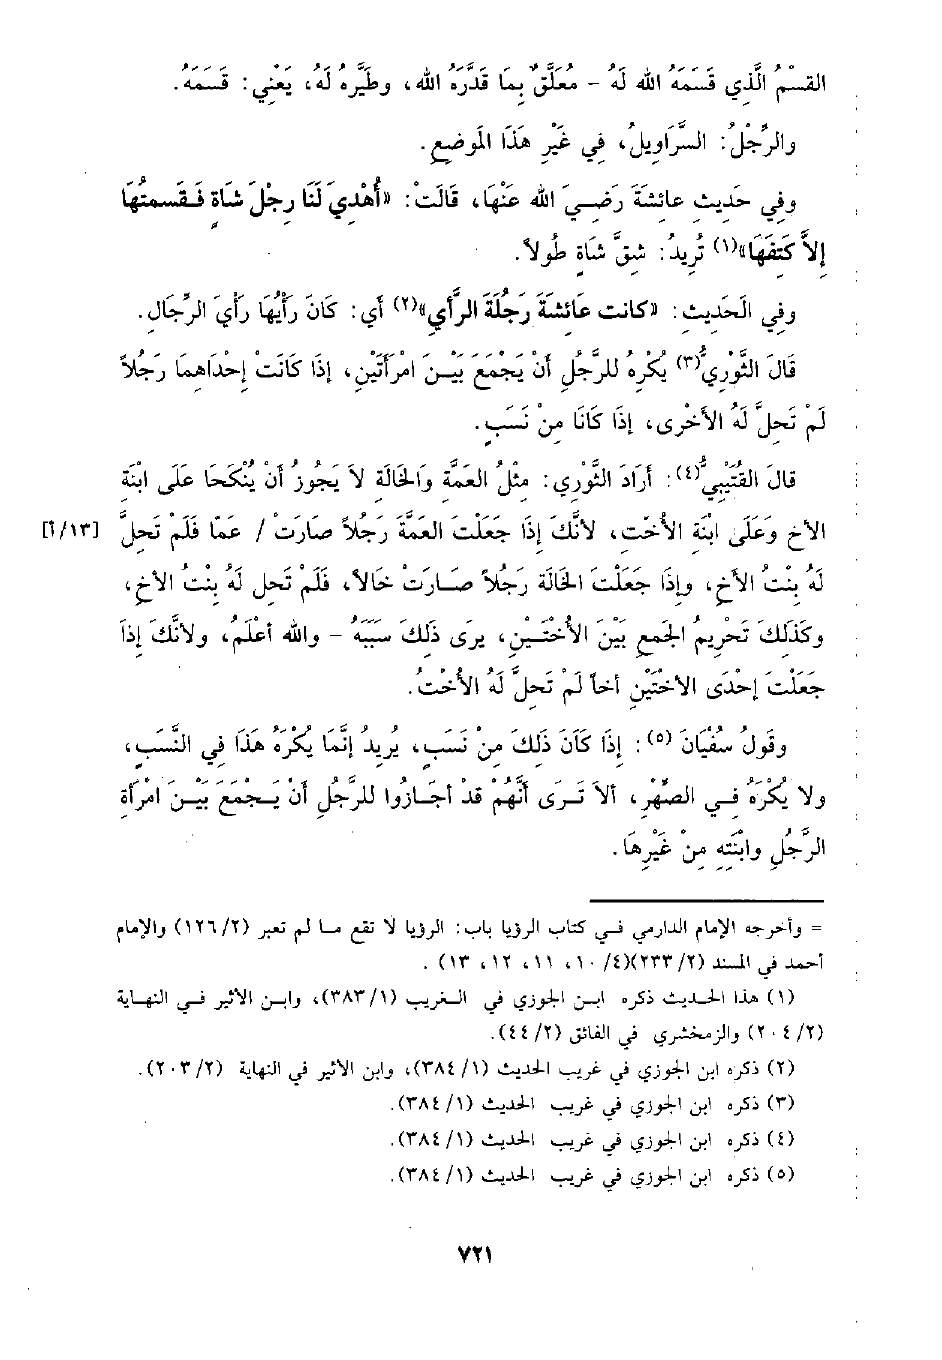 القسْمُ الَّذِي قَسَمَهُ الله لَهُ – مُعَلَّقٌ بِمَا قَدَّرَهُ الله، وطَيْره لَهُ، يَعْنِي: قَسَمَهُ.
والرِّجْلُ: السَّرَاوِيلُ، فِي غَيْرِ هَذَا المَوضِعِ.
وفي حَدِيثِ عائشةَ رَضِيَ الله عَنْهَا، قَالَتْ: «أُهْدِيَ لَنَا رِجْلُ شَاةٍ فَقَسمتُهَا
إلاَّ كَتِفَهَا»(١) تُرِيدُ: شقَّ شَاةٍ طُولاً.
وفي الَحَدِيثِ: «كانت عَائشَةَ رَجُلَةَ الرَّأي»(٢) أي: كَانَ رَأْيُهَا رَأْيَ الرِّجَالِ.
قَالَ الثَّوْرِيُّ(٣) يُكْرهُ للرَّجُلِ أَنْ يَجْمَعَ بَيْنَ امْرَأَتَيْنِ، إذَا كَانَتْ إحْدَاهمَا رَجُلاً
لَمْ تَحلَّ لَهُ الأخْرى، إذَا كَانَا مِنْ نَسَبٍ.
قالَ القُتَيْبِيُّ(٤): أرَادَ الثَّوْرِي: مثْلُ العَمَّةِ وَالخَالَةِ لاَ يَجُوزُ أَنْ يُنْكَحَا عَلَى ابْنَةِ
الأخِ وَعَلَى ابْنَةِ الأُخْتِ، لأنَّكَ إذَا جَعَلْتَ العَمَّةَ رَجُلاً صَارَتْ / عَمّا فَلَمْ تَحلَّ [١٣/أ]
لَهُ بِنْتُ الأَخِ، وإذَا جَعَلْتَ الخَالَةَ رَجُلاً صَارَتْ خَالاً، فَلَمْ تَحل لَهُ بِنْتُ الأخِ،
وكَذَلِكَ تَحْرِيمُ الجمعِ بَيْنَ الأُخْتَيْنِ، يرَى ذَلِكَ سَبَبَهُ – والله أعْلَمُ، ولأنَّكَ إذَا
جَعَلْتَ إحْدَى الأخْتَيْنِ أخاً لَمْ تَحلَّ لَهُ الأُخْتُ.
وقولُ سُفْيَانَ (٥): إذَا كَانَ ذَلكَ مِنْ نَسَبٍ، يُرِيدُ إنَّمَا يُكْرَهُ هَذَا فِي النَّسَبِ،
ولا يُكْرَهُ فِي الصِّهْرِ، ألاَ تَرَى أنَّهُمْ قَدْ أجَازُوا للرَّجُلِ أَنْ يَجْمَعَ بَيْنَ امْرَأةِ
الرَّجُلِ وابْنَتِهِ مِنْ غَيْرِهَا.
= وأخرجه الإمام الدارمي في كتاب الرؤيا باب: الرؤيا لا تقع ما لم تعبر (١٢٦/٢) والإمام
أحمد في المسند (٢٣٣/٢)(١٠/٤، ١١، ١٢، ١٣).
(١) هذا الحديث ذكره ابن الجوزي في الغريب (٣٨٣/١)، وابن الأثير في النهاية
(٢٠٤/٢) والزمخشري في الفائق (٤٤/٢).
(٢) ذكره ابن الجوزي في غريب الحديث (٣٨٤/١)، وابن الأثير في النهاية (٢٠٣/٢).
(٣) ذكره ابن الجوزي في غريب الحديث (٣٨٤/١).
(٤) ذكره ابن الجوزي في غريب الحديث (٣٨٤/١).
(٥) ذكره ابن الجوزي في غريب الحديث (٣٨٤/١).
٧٢١